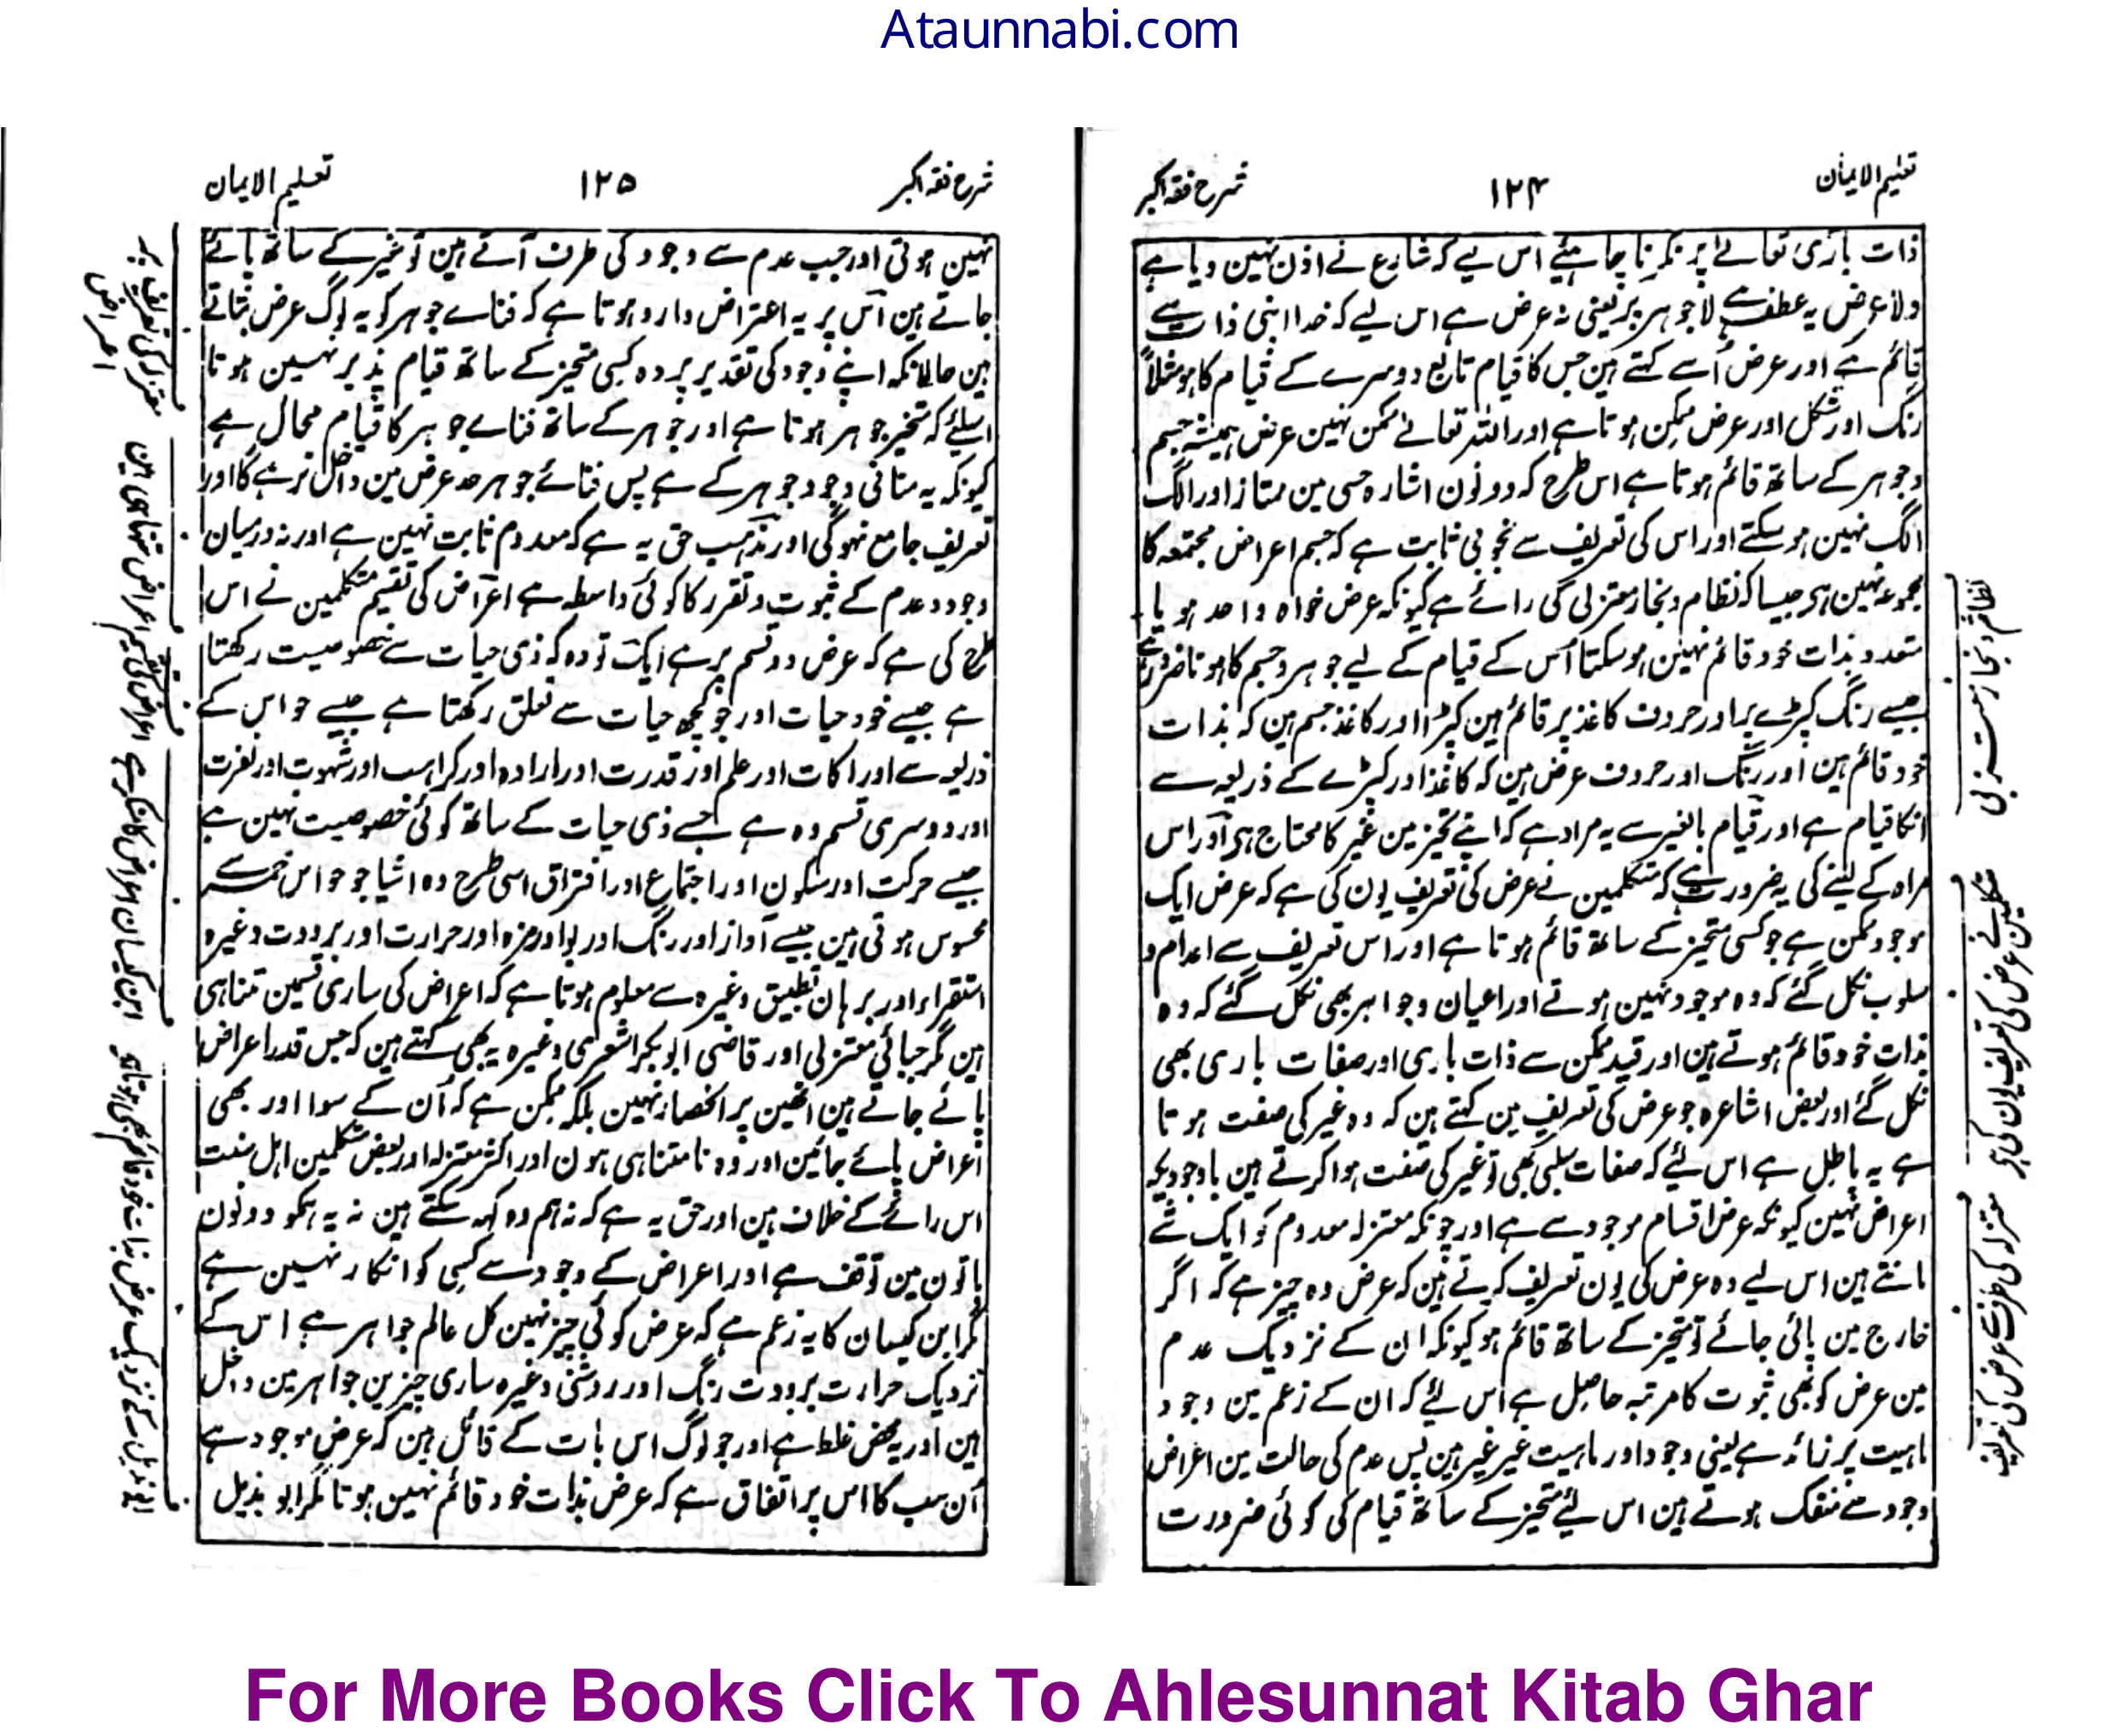 Ataunnabi.com
تعلیم الایمان
۱۲۴
شرح فقہ اکبر
ذات باری تعالےٰ پر نکرنا چاہئے اس لیے کہ شارع نے اذن نہین دیا ہے
ولا عرض یہ عطف ہے لا جوہر پر یعنی نہ عرض ہے اس لیے کہ خدا اپنی ذات سے
قائم ہے اور عرض اُسے کہتے ہین جس کا قیام تابع دوسرے کے قیام کا ہو مثلاً
رنگ اور شکل اور عرض ممکن ہوتا ہے اور اللہ تعالےٰ ممکن نہین عرض ہمیشہ جسم
وجوہر کے ساتھ قائم ہوتا ہے اس طرح کہ دونون اشارہ حسی مین ممتاز اور الگ
الگ نہین ہوسکتے اور اس کی تعریف سے بخوبی ثابت ہے کہ جسم اعراض مجتمعہ کا
مجموعہ نہین ہی جیسا کہ نظام ونجار معتزلی کی رائے ہے کیونکہ عرض خواہ واحد ہو یا
متعدد بذات خود قائم نہین ہوسکتا اُس کے قیام کے لیے جوہر وجسم کا ہونا ضرور ہے
جیسے رنگ کپڑے پر اور حروف کاغذ پر قائم ہین کپڑا اور کاغذ جسم ہین کہ بذات
خود قائم ہین اور رنگ اور حروف عرض ہین کہ کاغذ اور کپڑے کے ذریعہ سے
انکا قیام ہے اور قیام بالغیر سے یہ مراد ہے کہ اپنے تحیز مین غیر کا محتاج ہی اور اس
مراد کے لینے کی یہ ضرورت ہے کہ متکلمین نے عرض کی تعریف یون کی ہے کہ عرض ایک
موجود ممکن ہے جو کسی متحیز کے ساتھ قائم ہوتا ہے اور اس تعریف سے اعدام و
سلوب نکل گئے کہ وہ موجود نہین ہوتے اور اعیان وجواہر بھی نکل گئے کہ وہ
بذات خود قائم ہوتے ہین اور قید ممکن سے ذات باری اور صفات باری بھی
نکل گئے اور بعض اشاعرہ جو عرض کی تعریف مین کہتے ہین کہ وہ غیر کی صفت ہوتا
ہے یہ باطل ہے اس لیئے کہ صفات سلبی بھی تو غیر کی صفت ہوا کرتے ہین باوجودیکہ
اعراض نہین کیونکہ عرض اقسام موجود سے ہے اور چونکہ معتزلہ معدوم کو ایک شے
مانتے ہین اس لیے وہ عرض کی یون تعریف کرتے ہین کہ عرض وہ چیز ہے کہ اگر
خارج مین پائی جائے تو متحیز کے ساتھ قائم ہو کیونکہ ان کے نزدیک عدم
مین عرض کو بھی ثبوت کا مرتبہ حاصل ہے اس لیئے کہ ان کے زعم مین وجود
ماہیت پر زائد ہے یعنی وجود اور ماہیت غیر غیر ہین پس عدم کی حالت مین اعراض
وجود سے منفک ہوتے ہین اس لیئے متحیز کے ساتھ قیام کی کوئی ضرورت
نظام ونجار معتزلی
متکلمین نے عرض کی تعریف یون کی ہی
معتزلہ کی طرف سے عرض کی تعریف
شرح فقہ اکبر
۱۲۵
تعلیم الایمان
نہین ہوتی اور جب عدم سے وجود کی طرف آتے ہین تو متحیز کے ساتھ پائے
جاتے ہین اُس پر یہ اعتراض وارد ہوتا ہے کہ فنائے جوہر کو یہ لوگ عرض بتاتے
ہین حالانکہ اپنے وجود کی تقدیر پر وہ کسی متحیز کے ساتھ قیام پذیر نہین ہوتا
اسلئے کہ متحیز جوہر ہوتا ہے اور جوہر کے ساتھ فنائے جوہر کا قیام محال ہے
کیونکہ یہ منافی وجود جوہر کے ہے پس فنائے جوہر حد عرض مین داخل نرہے گا اور
تعریف جامع نہوگی اور مذہب حق یہ ہے کہ معدوم ثابت نہین ہے اور نہ درمیان
وجود وعدم کے ثبوت وتقرر کا کوئی واسطہ ہے اعراض کی تقسیم متکلمین نے اس
طرح کی ہے کہ عرض دو قسم پر ہے ایک تو وہ کہ ذی حیات سے خصوصیت رکھتا
ہے جیسے خود حیات اور جو کچھ حیات سے تعلق رکھتا ہے جیسے حواس کے
ذریعہ سے ادراکات اور علم اور قدرت اور ارادہ اور کراہت اور شہوت اور نفرت
اور دوسری قسم وہ ہے جسے ذی حیات کے ساتھ کوئی خصوصیت نہین ہے
جیسے حرکت اور سکون اور اجتماع اور افتراق اسی طرح وہ اشیا جو حواس خمسہ سے
محسوس ہوتی ہین جیسے آواز اور رنگ اور بو اور مزہ اور حرارت اور برودت وغیرہ
استقراء اور برہان تطبیق وغیرہ سے معلوم ہوتا ہے کہ اعراض کی ساری قسمین متناہی
ہین مگر جبائی معتزلی اور قاضی ابوبکر اشعری وغیرہ یہ بھی کہتے ہین کہ جس قدر اعراض
پائے جاتے ہین انھین پر انحصار نہین بلکہ ممکن ہے کہ اُن کے سوا اور بھی
اعراض پائے جائین اور وہ نا متناہی ہون اور اکثر معتزلہ اور بعض متکلمین اہل سنت
اس رائے کے خلاف ہین اور حق یہ ہے کہ نہ ہم وہ کہہ سکتے ہین نہ یہ ہمکو دونون
باتون مین توقف ہے اور اعراض کے وجود سے کسی کو انکار نہین ہے
مگر ابن کیسان کا یہ زعم ہے کہ عرض کوئی چیز نہین کل عالم جواہر ہے اس کے
نزدیک حرارت برودت رنگ اور روشنی وغیرہ ساری چیزین جواہر مین داخل
ہین اور یہ محض غلط ہے اور جو لوگ اس بات کے قائل ہین کہ عرض موجود ہے
اُن سب کا اس پر اتفاق ہے کہ عرض بذات خود قائم نہین ہوتا مگر ابو ہذیل
معتزلہ کی تعریف پر اعتراض
اعراض کی تقسیم اعراض متناہی ہین
ابن کیسان اعراض کا منکر ہے
ابو ہذیل کے نزدیک عرض بذات خود قائم بھی ہوتا ہی
For More Books Click To Ahlesunnat Kitab Ghar